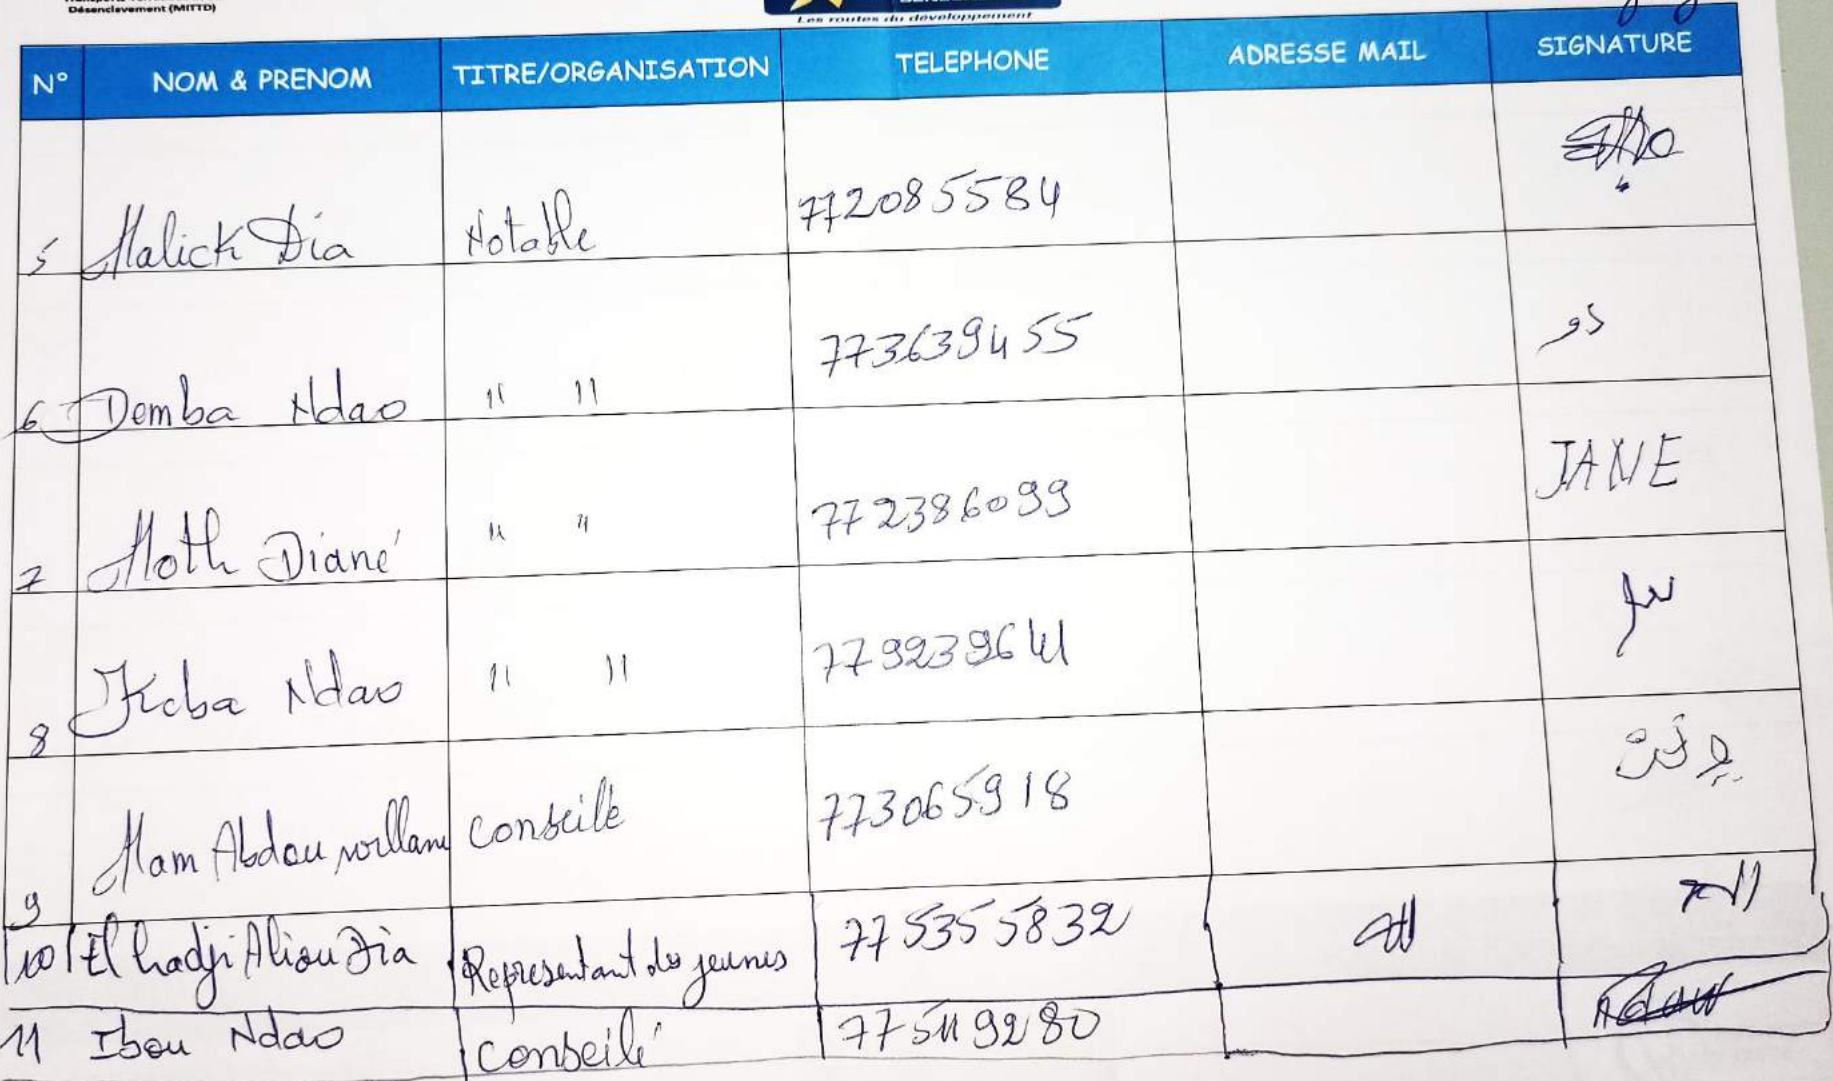 Désenclavement (MITTD)
Les routes du développement
N° NOM & PRENOM TITRE/ORGANISATION TELEPHONE ADRESSE MAIL SIGNATURE
5 Malick Dia Notable 772085584
6 Demba Ndao " " 773639455
7 Moth Diané " " 772386099 JANE
8 Keba Ndao " " 779239641
9 Mam Abdou conseillé 773065918
10 El hadji Aliou Dia Representant des jeunes 775355832
11 Ibou Ndao conseillé 775119280 Ndaw